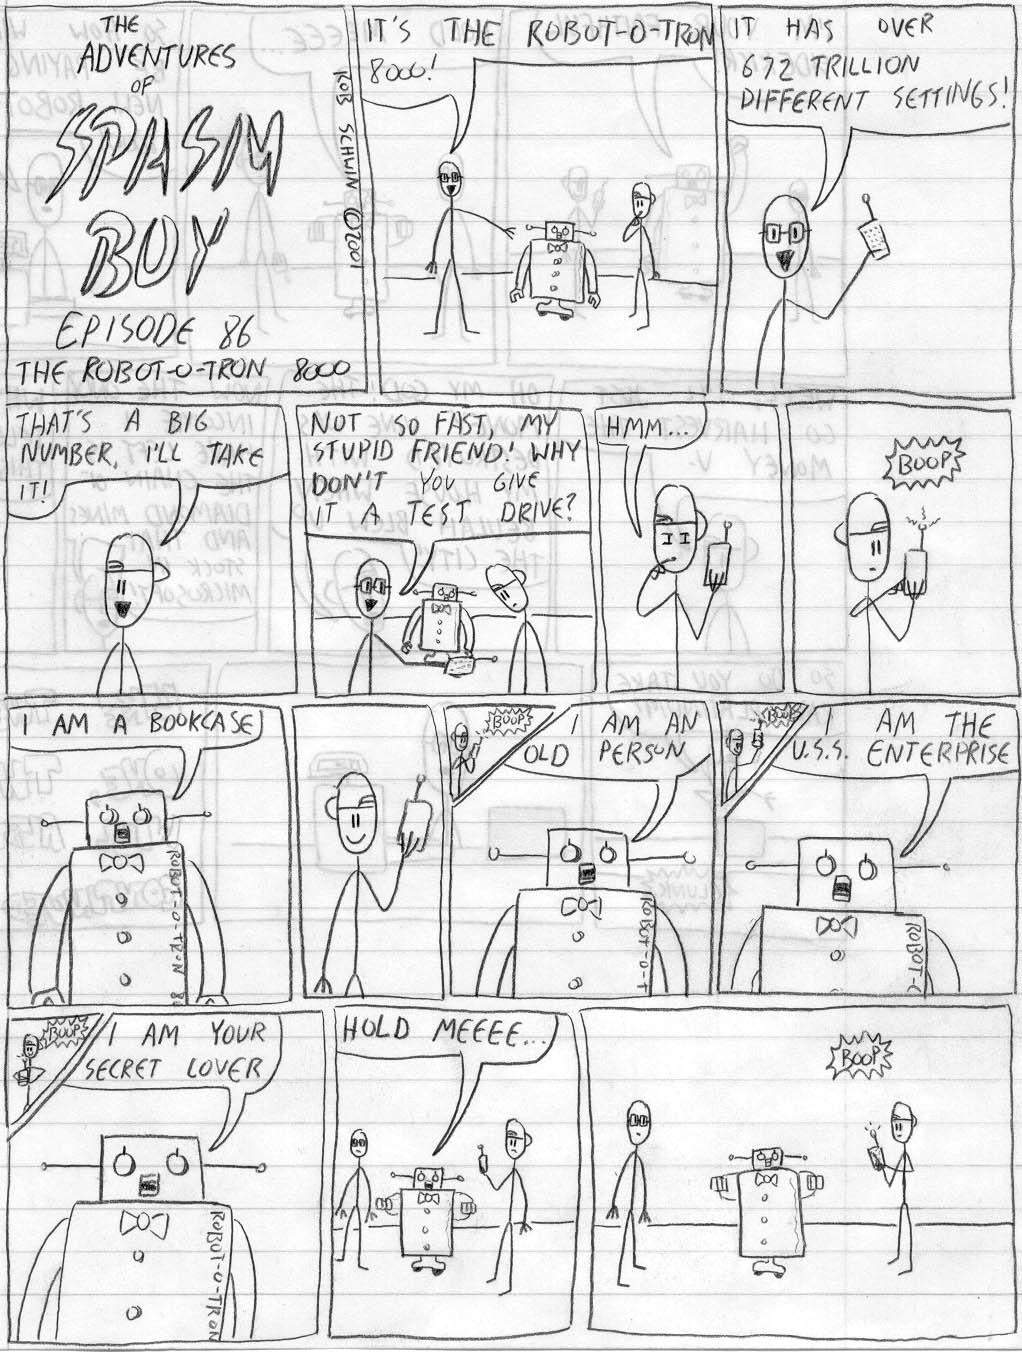 THE
ADVENTURES
OF
SPASM
BOY
EPISODE 86
THE ROBOT-O-TRON 8000
ROB SCHWIN ©2001
IT'S THE ROBOT-O-TRON
8000!
IT HAS OVER
672 TRILLION
DIFFERENT SETTINGS!
THAT'S A BIG
NUMBER, I'LL TAKE
IT!
NOT SO FAST, MY
STUPID FRIEND! WHY
DON'T YOU GIVE
IT A TEST DRIVE?
HMM...
BOOP
I AM A BOOKCASE
ROBOT-O-TRON 80
BOOP
I AM AN
OLD PERSON
ROBOT-O-T
BOOP
I AM THE
U.S.S. ENTERPRISE
ROBOT-O
BOOP
I AM YOUR
SECRET LOVER
ROBOT-O-TRON
HOLD MEEEE...
BOOP